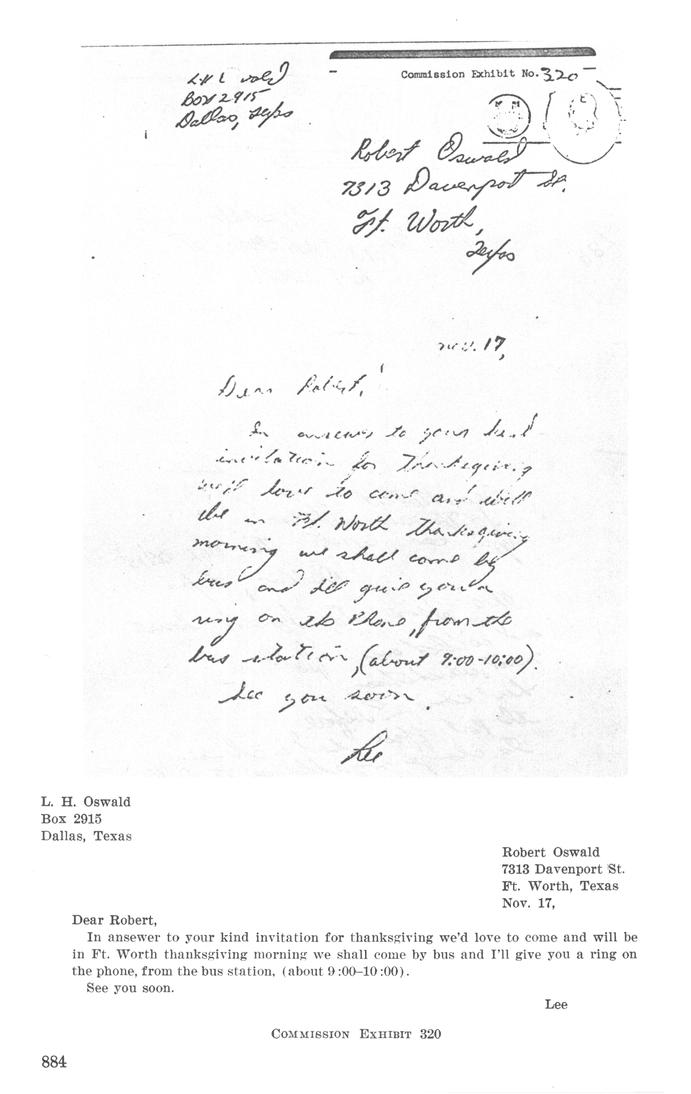 L H Oswald
Box 2915
Dallas, Texas
Commission Exhibit No. 320
Robert Oswald
7313 Davenport St.
Ft. Worth,
Texas
Nov. 17,
Dear Robert,
In answer to your kind
invitation for Thanksgiving
we'd love to come and will
be in Ft. Worth Thanksgiving
morning we shall come by
bus and I'll give you a
ring on the Phone, from the
bus station, (about 9:00-10:00).
See you soon.
Lee
L. H. Oswald
Box 2915
Dallas, Texas
Robert Oswald
7313 Davenport St.
Ft. Worth, Texas
Nov. 17,
Dear Robert,
In ansewer to your kind invitation for thanksgiving we'd love to come and will be
in Ft. Worth thanksgiving morning we shall come by bus and I'll give you a ring on
the phone, from the bus station, (about 9:00–10:00).
See you soon.
Lee
COMMISSION EXHIBIT 320
884